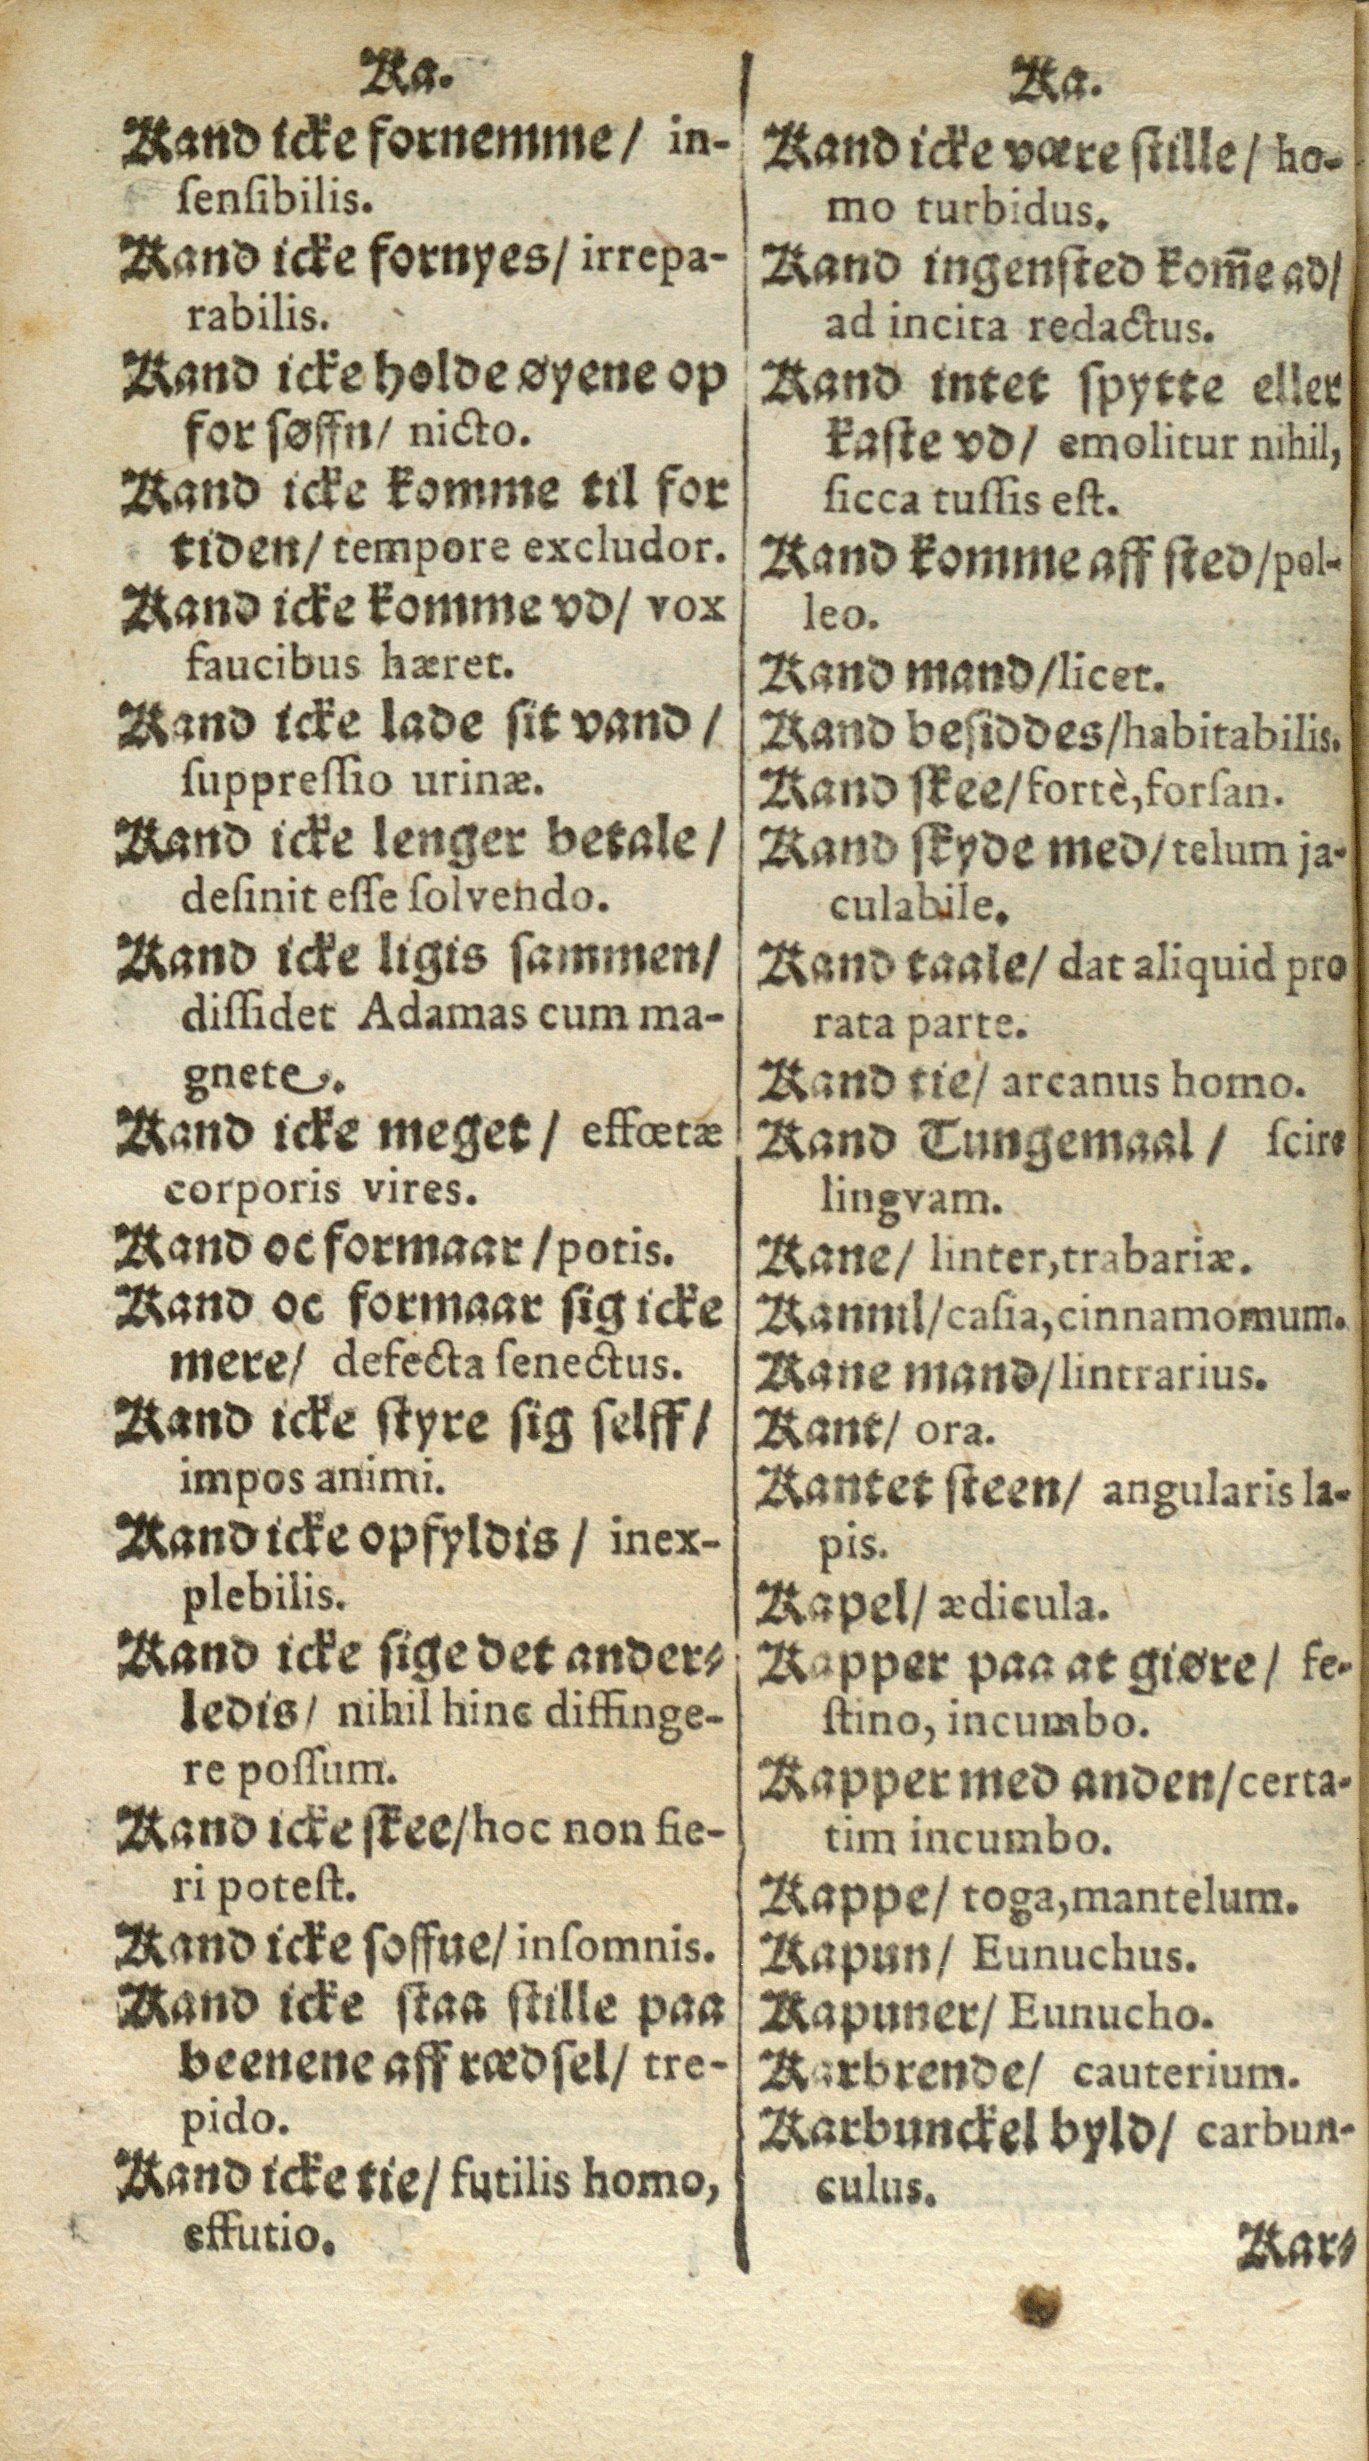 Ka.
Kand icke fornemme / in-
ſenſibilis.
Kand icke fornyes / irrepa-
rabilis.
Kand icke holde øyene op
for søffn / nicto.
Kand icke komme til for
tiden / tempore excludor.
Kand icke komme vd / vox
faucibus hæret.
Kand icke lade sit vand /
ſuppreſſio urinæ.
Kand icke lenger betale /
deſinit eſſe ſolvendo.
Kand icke ligis sammen /
diſſidet Adamas cum ma-
gnete.
Kand icke meget / effœtæ
corporis vires.
Kand oc formaar / potis.
Kand oc formaar sig icke
mere / defecta ſenectus.
Kand icke ſtyre sig selff /
impos animi.
Kand icke opfyldis / inex-
plebilis.
Kand icke sige det ander-
ledis / nihil hinc diffinge-
re poſſum.
Kand icke ſkee / hoc non fie-
ri poteſt.
Kand icke soffue / inſomnis.
Kand icke ſtaa ſtille paa
beenene aff rædſel / tre-
pido.
Kand icke tie / futilis homo,
effutio.
Ka.
Kand icke være ſtille / ho-
mo turbidus.
Kand ingenſted kom̄e ad /
ad incita redactus.
Kand intet ſpytte eller
kaſte vd / emolitur nihil,
ſicca tuſſis eſt.
Kand komme aff ſted / pol-
leo.
Kand mand / licet.
Kand beſiddes / habitabilis.
Kand ſkee / fortè, forſan.
Kand ſkyde med / telum ja-
culabile.
Kand taale / dat aliquid pro
rata parte.
Kand tie / arcanus homo.
Kand Tungemaal / ſcire
lingvam.
Kane / linter, trabariæ.
Kannil / caſia, cinnamomum.
Kane mand / lintrarius.
Kant / ora.
Kantet ſteen / angularis la-
pis.
Kapel / ædicula.
Kapper paa at giøre / fe-
ſtino, incumbo.
Kapper med anden / certa-
tim incumbo.
Kappe / toga, mantelum.
Kapun / Eunuchus.
Kapuner / Eunucho.
Karbrende / cauterium.
Karbunckel byld / carbun-
culus.
Kar-